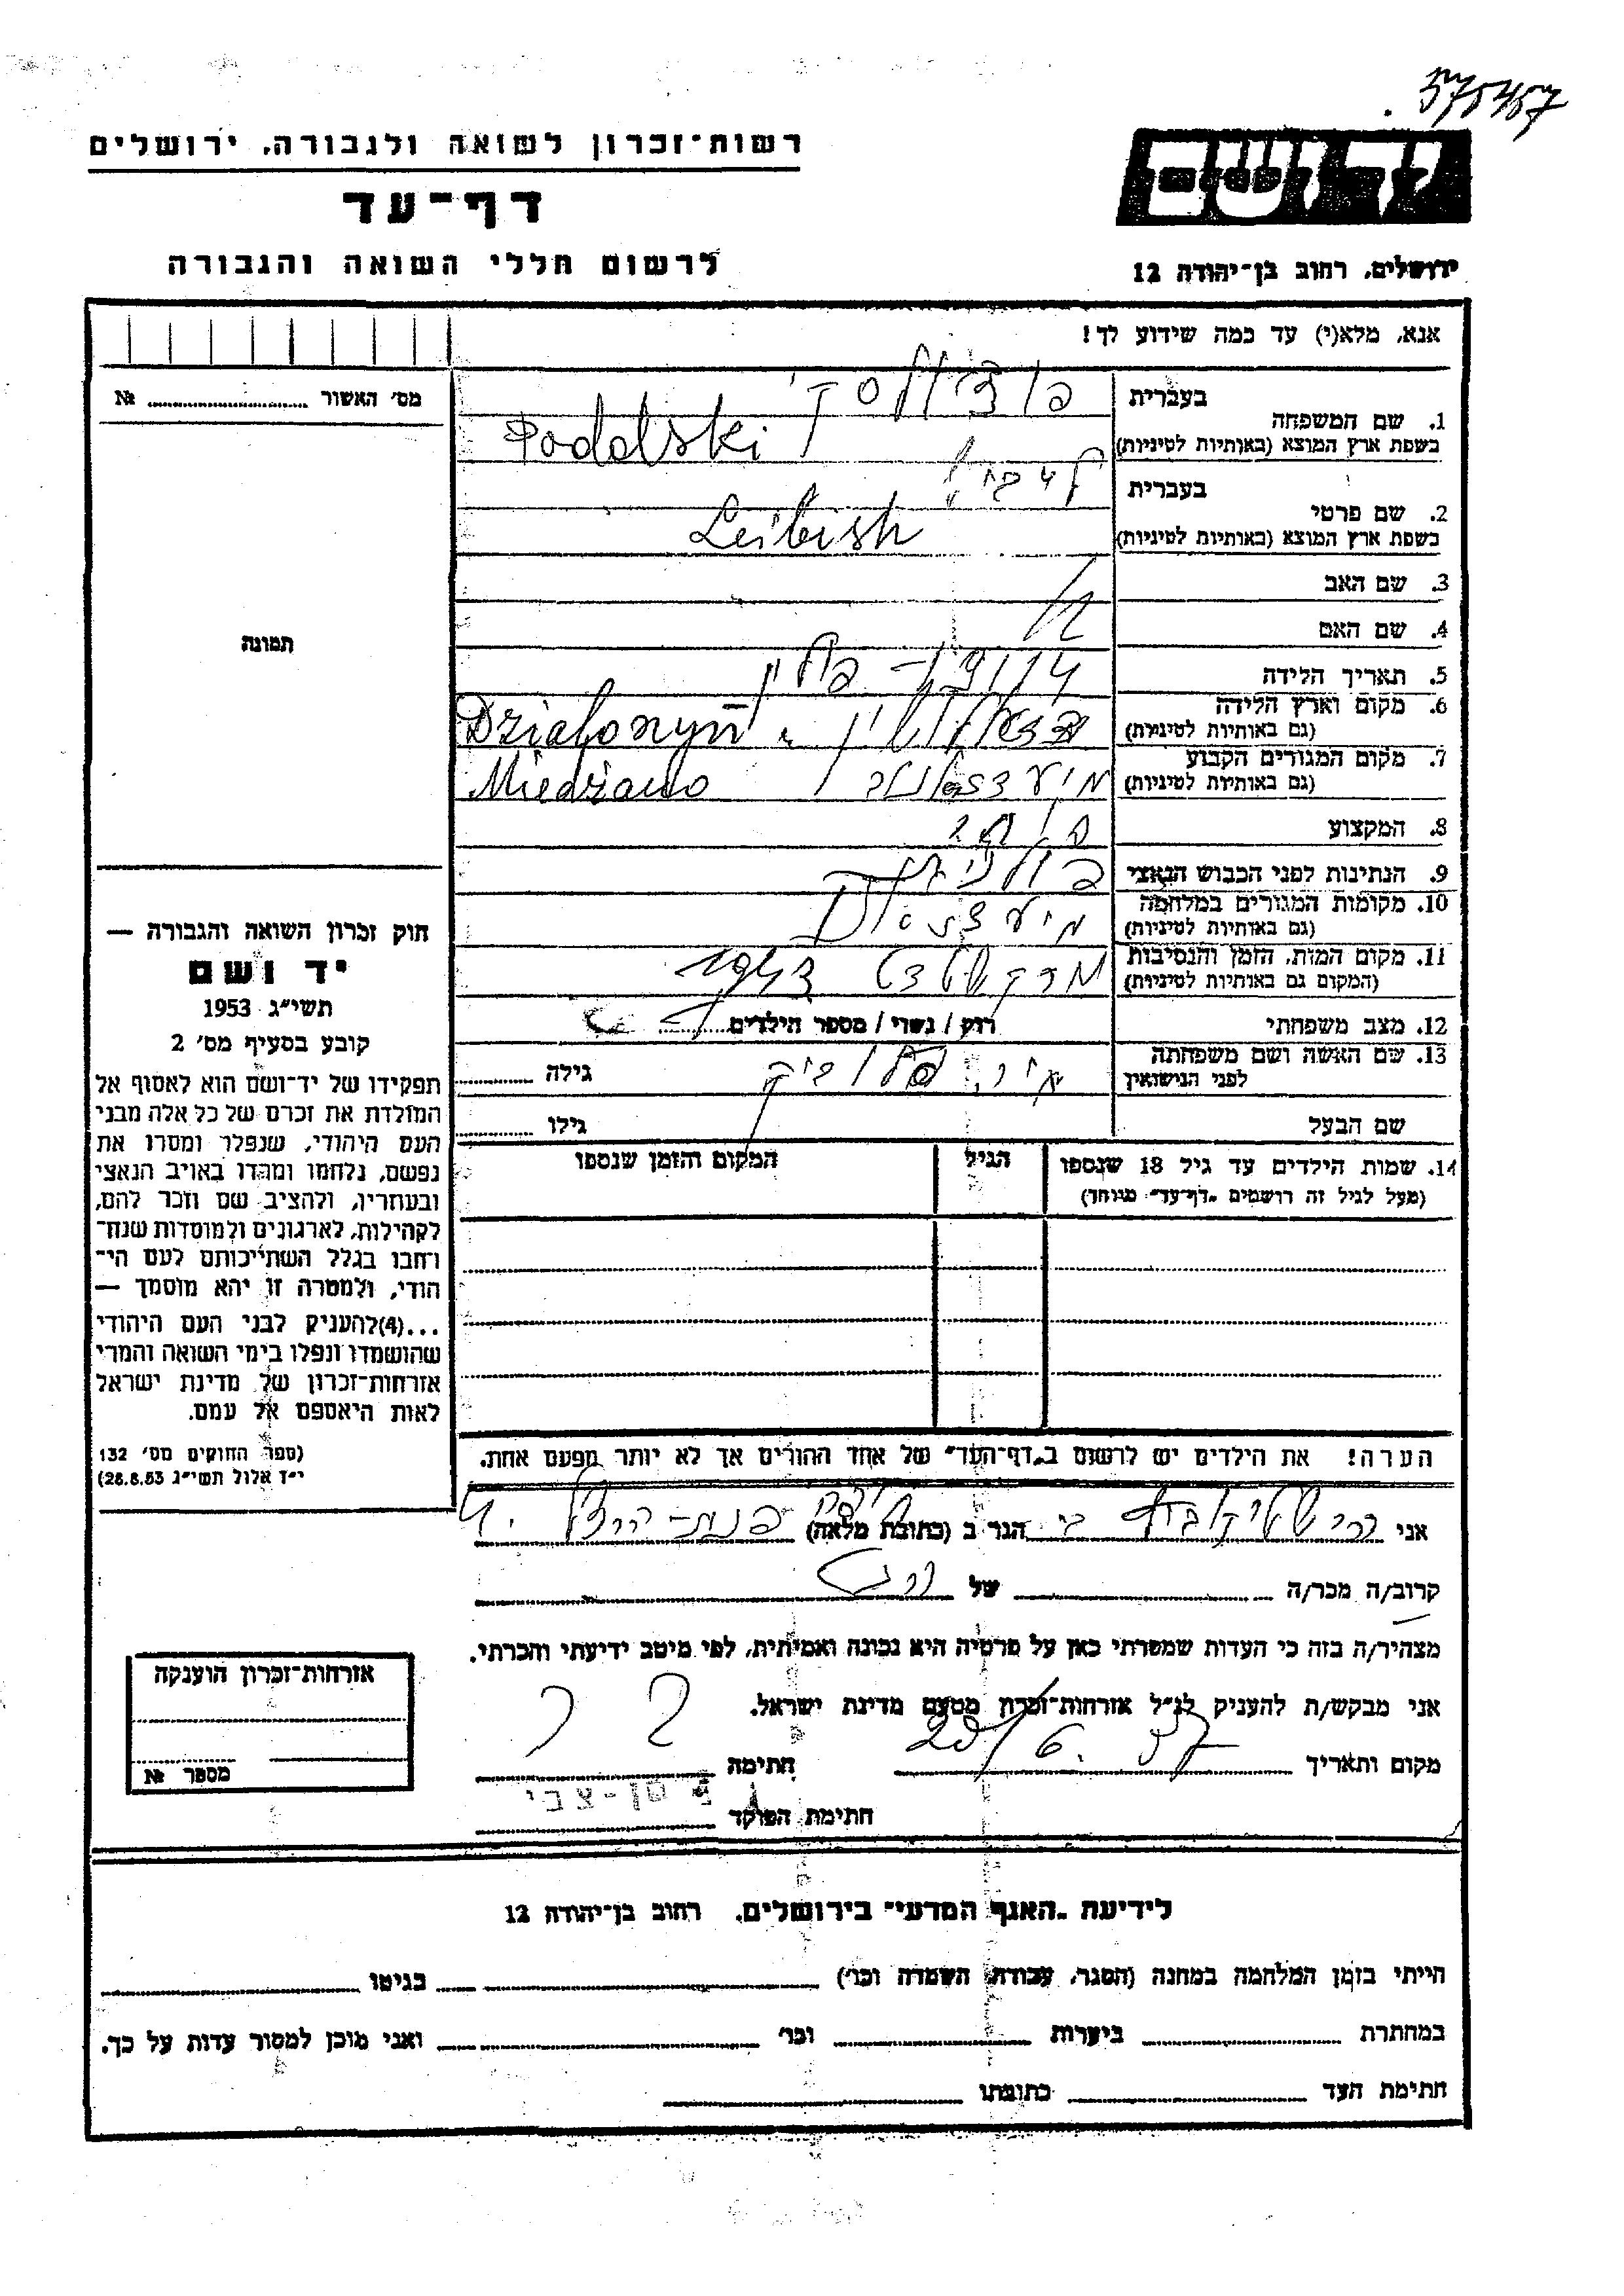 575457
רשות־זכרון לשואה ולגבורה, ירושלים
דף־עד
לרשום חללי השואה והגבורה
ידושם
ירושלים, רחוב בן־יהודה 12
אנא, מלא(י) עד כמה שידוע לך!
מס' האשור № 
1. שם המשפחה בעברית פודולסקי
בשפת ארץ המוצא (באותיות לטיניות) Podolski
2. שם פרטי בעברית לייביש
בשפת ארץ המוצא (באותיות לטיניות) Leibish
3. שם האב
4. שם האם
5. תאריך הלידה
6. מקום וארץ הלידה
(גם באותיות לטיניות) Działoszyn
7. מקום המגורים הקבוע
(גם באותיות לטיניות) Miedzno
8. המקצוע סוחר
9. הנתינות לפני הכבוש הנאצי פולנית
10. מקומות המגורים במלחמה
(גם באותיות לטיניות)
11. מקום המות, הזמן והנסיבות
(המקום גם באותיות לטיניות)
12. מצב משפחתי רוק / נשוי / מספר הילדים
13. שם האשה ושם משפחתה
לפני הנישואין גילה
שם הבעל גילו
14. שמות הילדים עד גיל 18 שנספו הגיל המקום והזמן שנספו
(מעל לגיל זה רושמים "דף־עד" מיוחד)
תמונה
חוק זכרון השואה והגבורה —
יד ושם
תשי"ג 1953
קובע בסעיף מס' 2
תפקידו של יד־ושם הוא לאסוף אל
המולדת את זכרם של כל אלה מבני
העם היהודי, שנפלו ומסרו את
נפשם, נלחמו ומרדו באויב הנאצי
ובעוזריו, ולהציב שם וזכר להם,
לקהילות, לארגונים ולמוסדות שנח־
רבו בגלל השתייכותם לעם הי־
הודי, ולמטרה זו יהא מוסמך —
...(4)להעניק לבני העם היהודי
שהושמדו ונפלו בימי השואה והמרי
אזרחות־זכרון של מדינת ישראל
לאות היאספם אל עמם.
(ספר החוקים מס' 132
י"ז אלול תשי"ג 28.8.53)
הערה! את הילדים יש לרשום ב"דף־העד" של אחד ההורים אך לא יותר מפעם אחת.
אני הגר ב (כתובת מלאה)
קרוב/ה מכר/ה של
מצהיר/ה בזה כי העדות שמסרתי כאן על פרטיה היא נכונה ואמיתית, לפי מיטב ידיעתי והכרתי.
אני מבקש/ת להעניק לנ"ל אזרחות־זכרון מטעם מדינת ישראל.
מקום ותאריך 20/6.57 חתימה
חתימת הפוקד
אזרחות־זכרון הוענקה
מספר №
לידיעת "האגף המדעי" בירושלים, רחוב בן־יהודה 12
הייתי בזמן המלחמה במחנה (הסגר, עבודה, השמדה וכו') בגיטו
במחתרת ביערות וכו' ואני מוכן למסור עדות על כך.
חתימת העד כתובתו